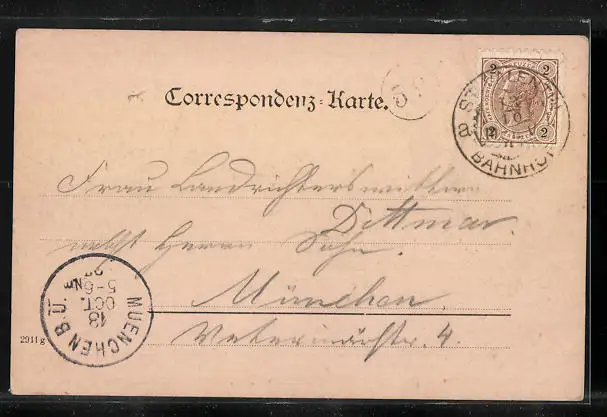 Correspondenz-Karte.
2
2
2
2
BAHNHOF
Frau Landrichterswittwe
Dittmar
nebst Herrn Sohn.
München
Veterinärstr. 4.
MUENCHEN B.Ü.
13
OCT.
5-6N
2911 g